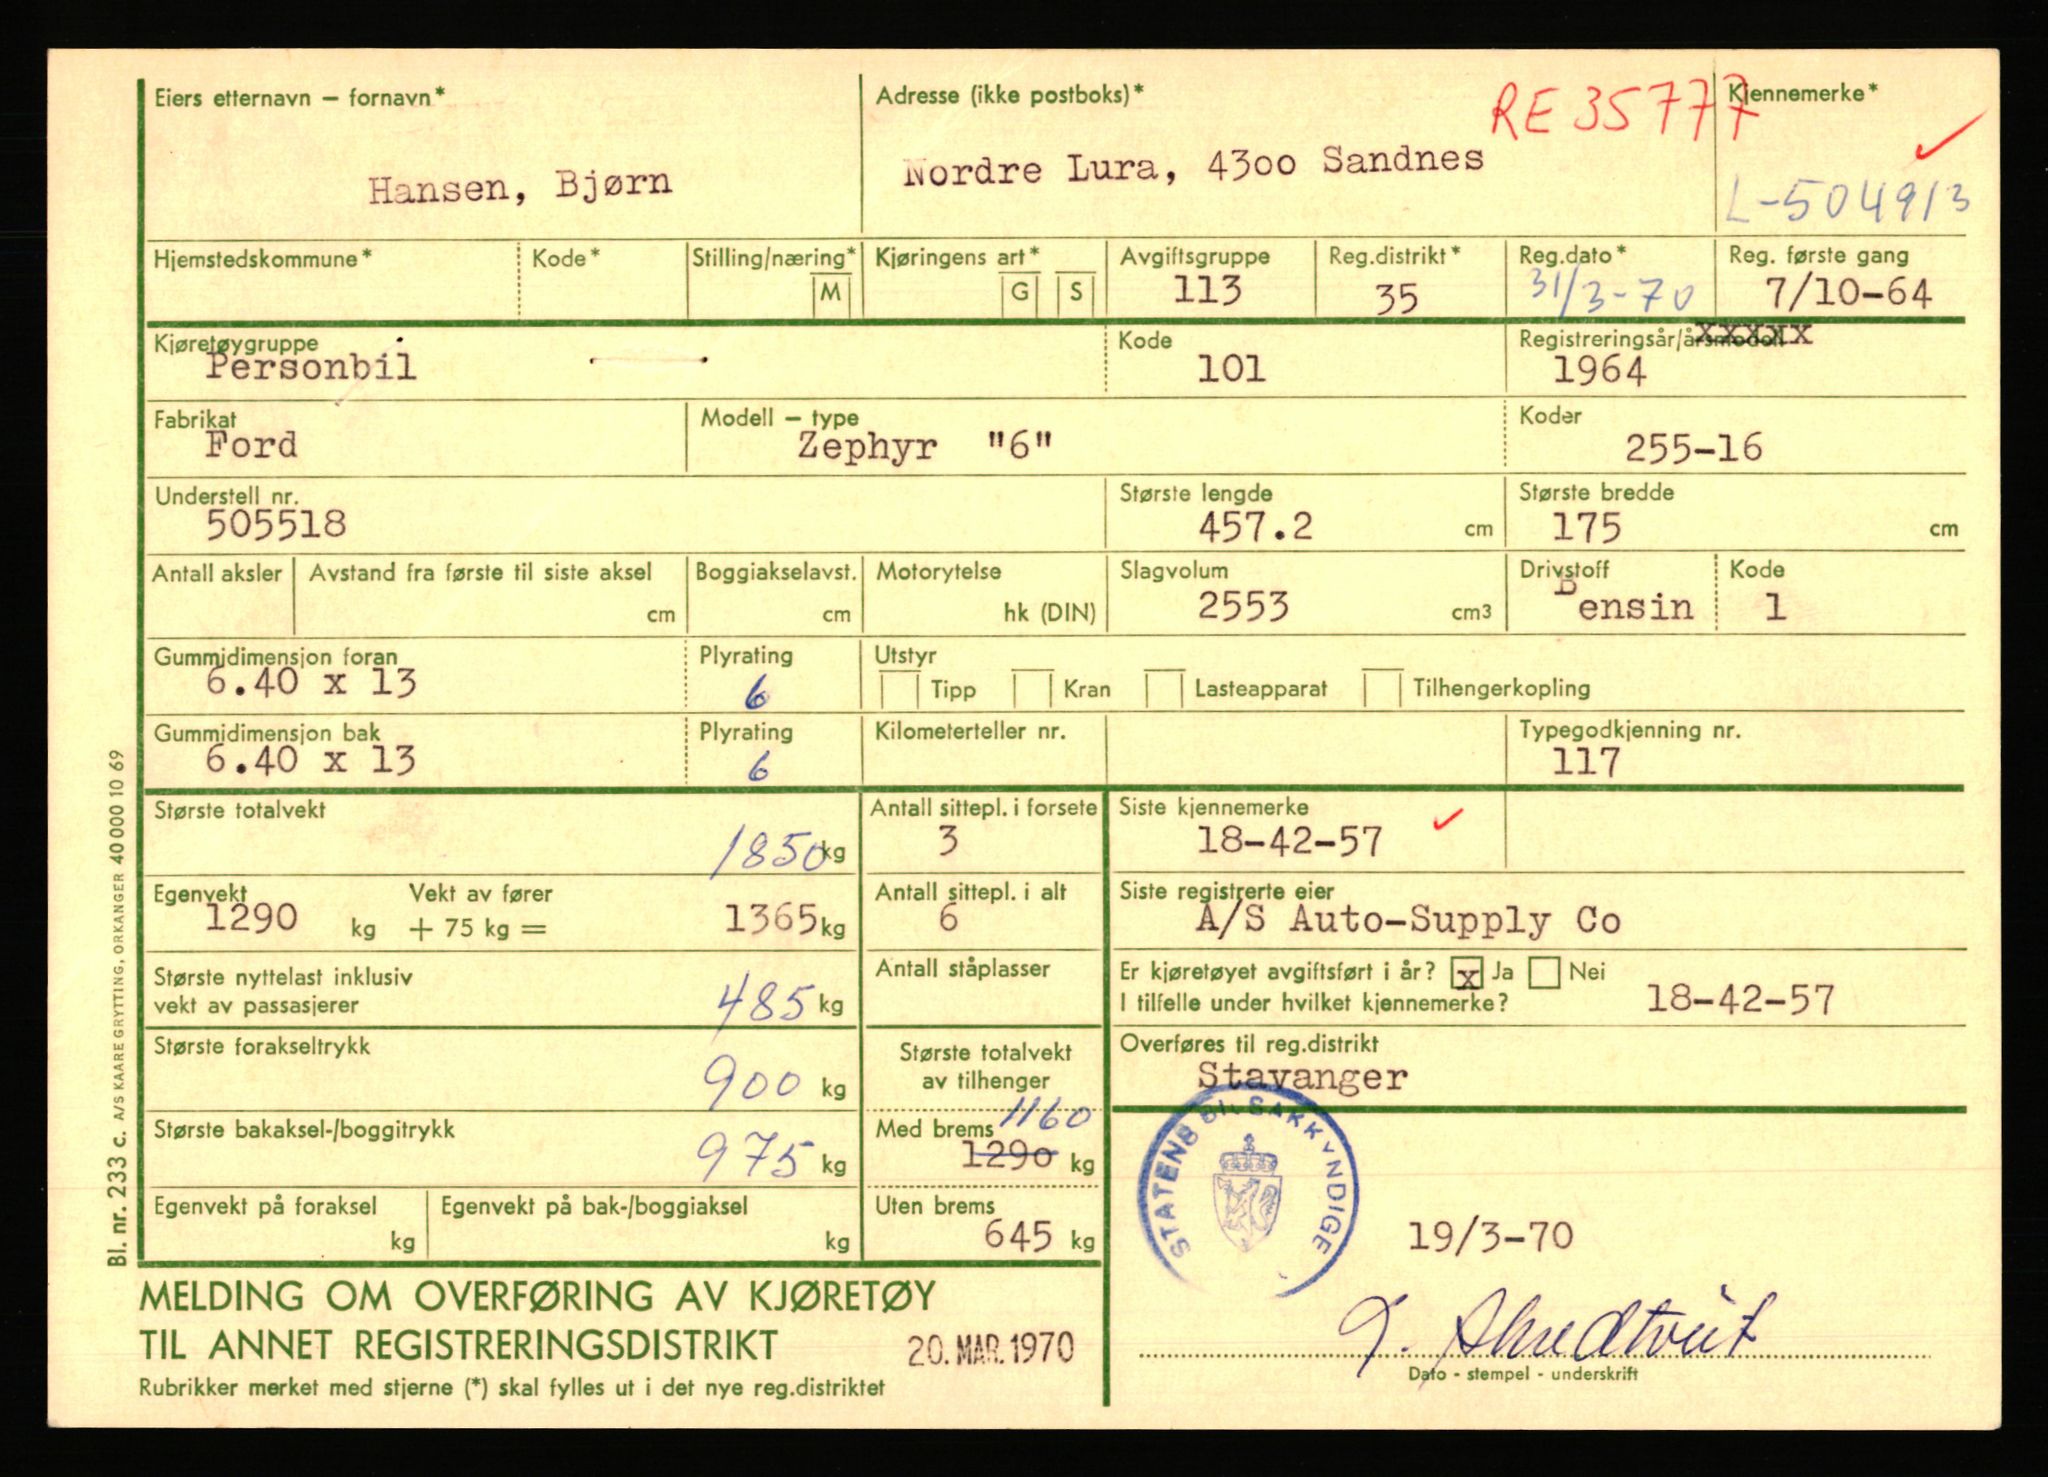 Eiers etternavn – fornavn*
Hansen, Bjørn
Adresse (ikke postboks)*
Nordre Lura, 4300 Sandnes
RE 35777
Kjennemerke*
L-50491/3
Hjemstedskommune*
Kode*
Stilling/næring*
M
Kjøringens art*
G S
Avgiftsgruppe
113
Reg.distrikt*
35
Reg.dato*
31/3-70
Reg. første gang
7/10-64
Kjøretøygruppe
Personbil
Kode
101
Registreringsår/årsmodell xxxxx
1964
Fabrikat
Ford
Modell – type
Zephyr "6"
Koder
255-16
Understell nr.
505518
Største lengde
457.2 cm
Største bredde
175 cm
Antall aksler
Avstand fra første til siste aksel
cm
Boggiakselavst.
cm
Motorytelse
hk (DIN)
Slagvolum
2553 cm3
Drivstoff
Bensin
Kode
1
Gummidimensjon foran
6.40 x 13
Plyrating
6
Utstyr
Tipp Kran Lasteapparat Tilhengerkopling
Gummidimensjon bak
6.40 x 13
Plyrating
6
Kilometerteller nr.
Typegodkjenning nr.
117
Største totalvekt
1850 kg
Antall sittepl. i forsete
3
Siste kjennemerke
18-42-57
Egenvekt
1290 kg
Vekt av fører
+ 75 kg = 1365 kg
Antall sittepl. i alt
6
Siste registrerte eier
A/S Auto-Supply Co
Største nyttelast inklusiv
vekt av passasjerer
485 kg
Antall ståplasser
Er kjøretøyet avgiftsført i år? x Ja Nei
I tilfelle under hvilket kjennemerke? 18-42-57
Største forakseltrykk
900 kg
Største totalvekt
av tilhenger
Overføres til reg.distrikt
Stavanger
Største bakaksel-/boggitrykk
975 kg
Med brems 1160
1290 kg
Egenvekt på foraksel
kg
Egenvekt på bak-/boggiaksel
kg
Uten brems
645 kg
STATENS BILSAKKYNDIGE
19/3-70
Dato - stempel - underskrift
MELDING OM OVERFØRING AV KJØRETØY
TIL ANNET REGISTRERINGSDISTRIKT
20. MAR. 1970
Rubrikker merket med stjerne (*) skal fylles ut i det nye reg.distriktet
Bl. nr. 233 c. A/S KAARE GRYTTING, ORKANGER 40 000 10 69